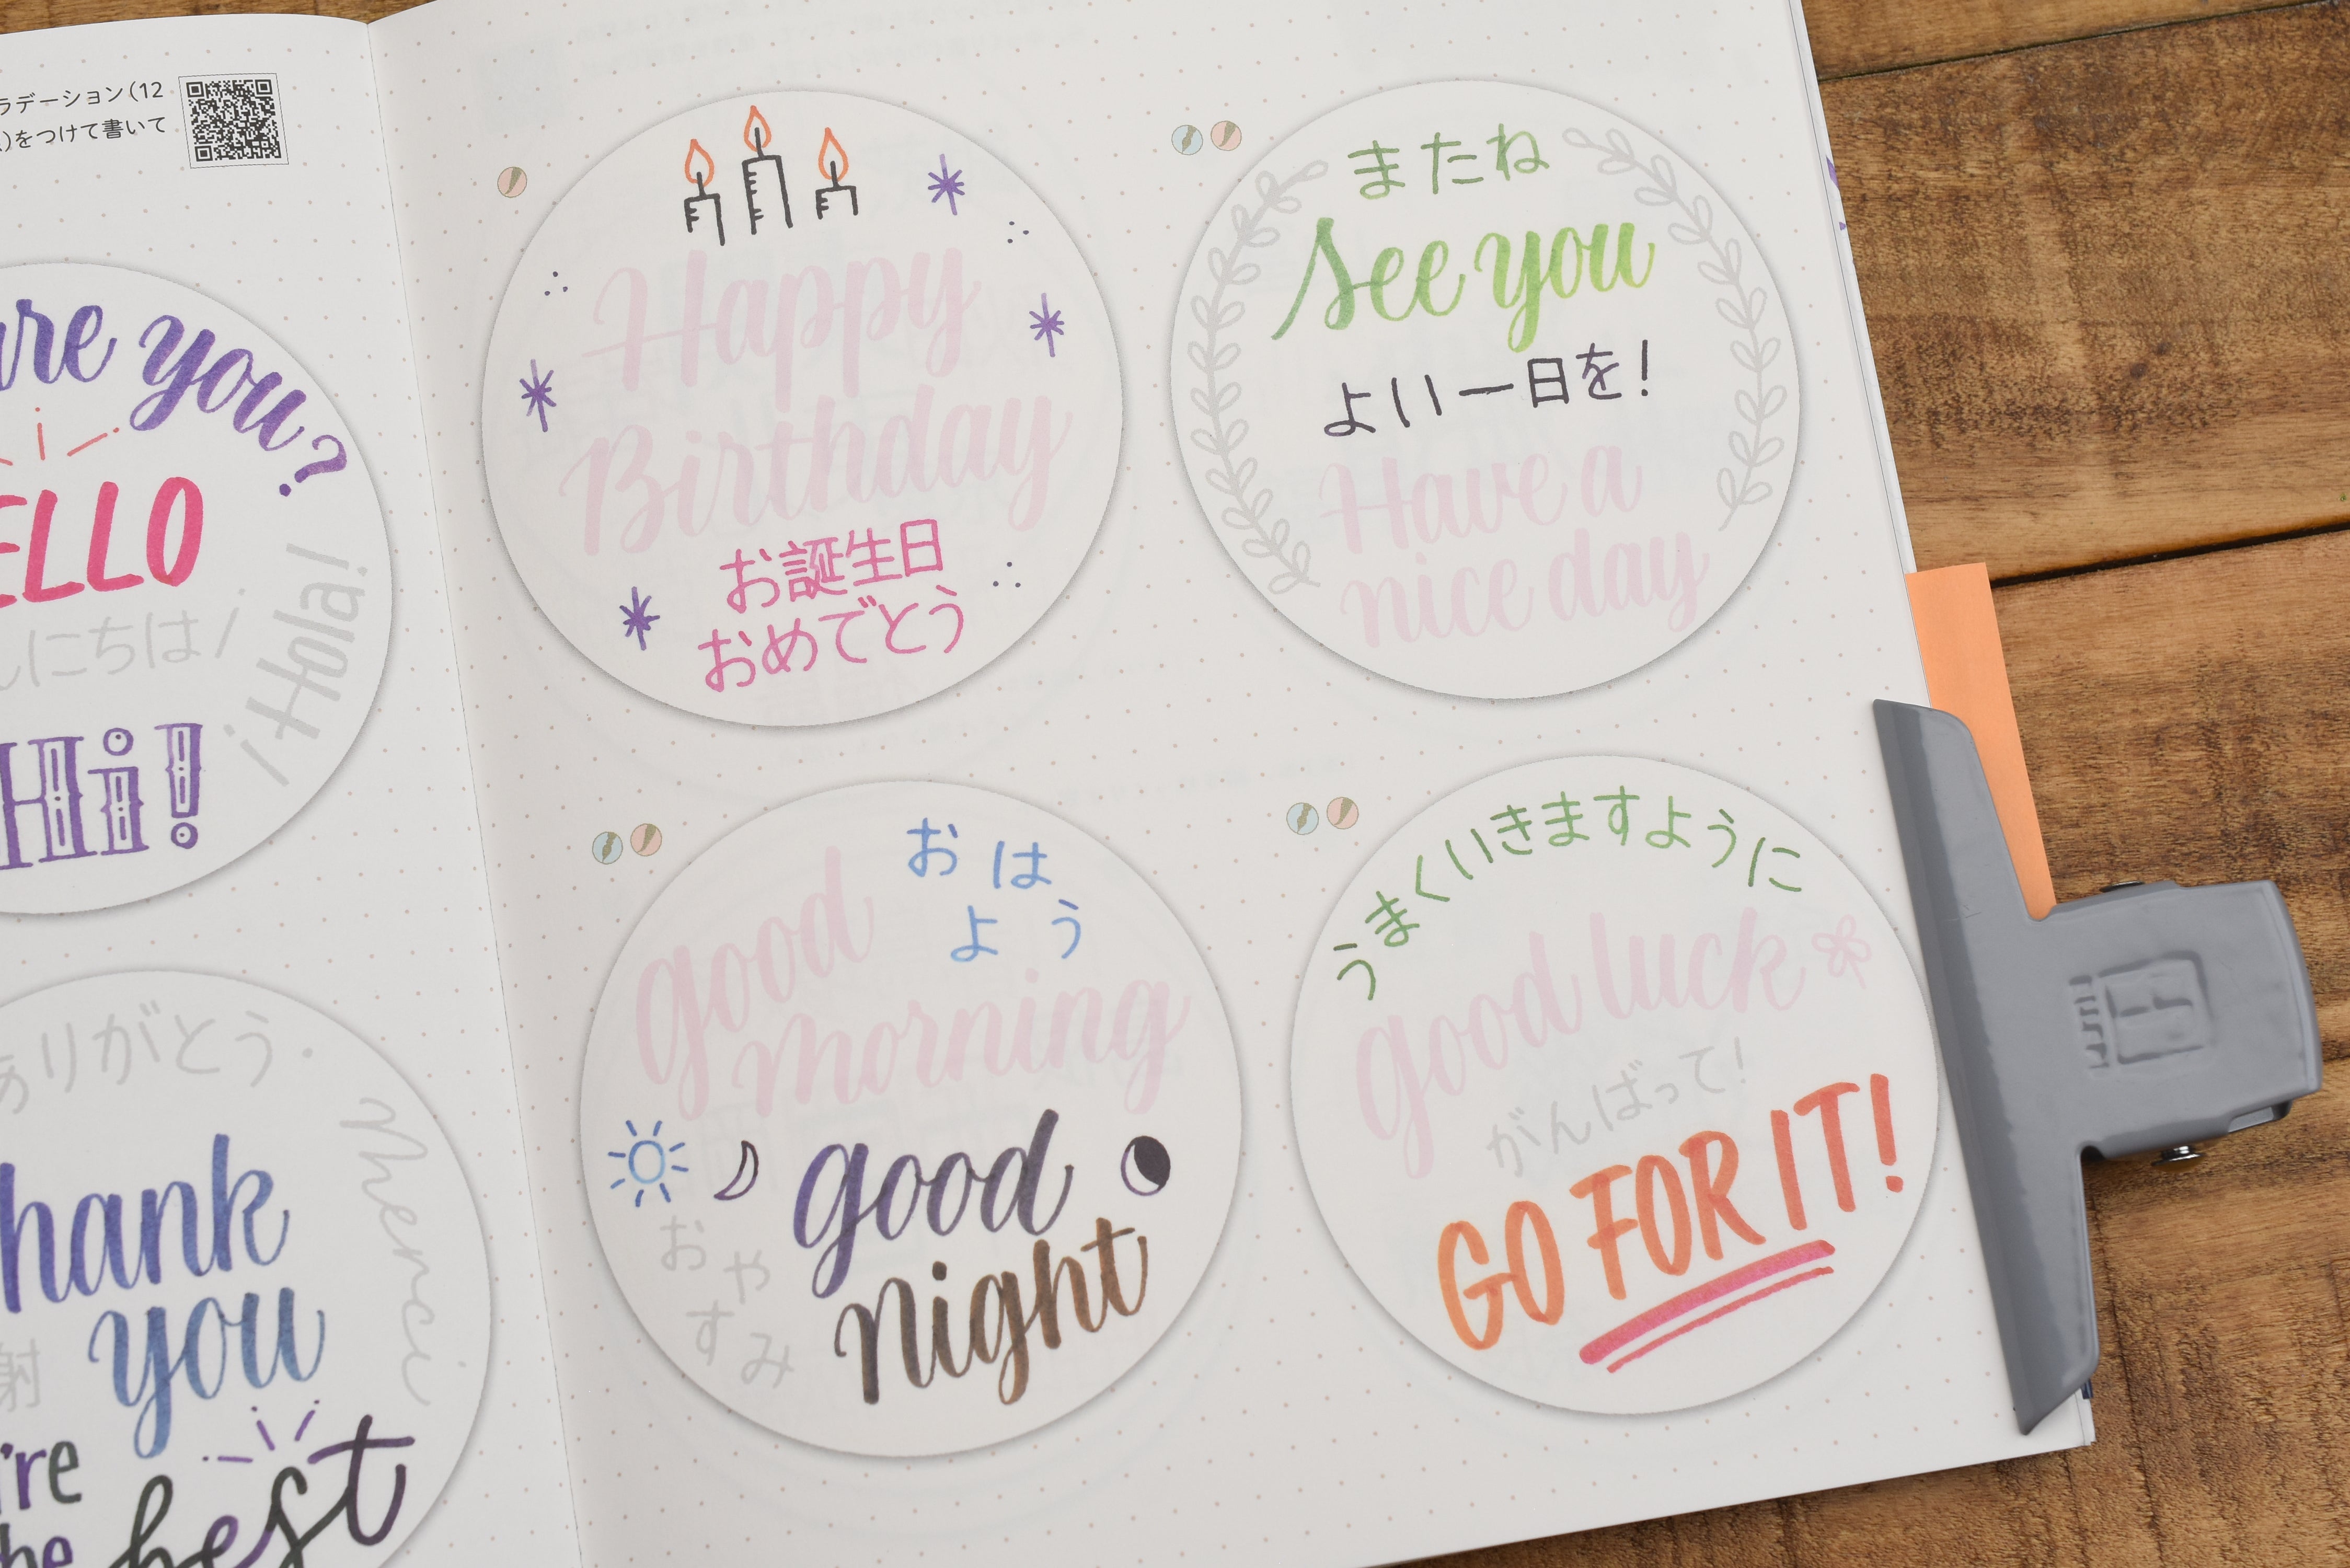 ラデーション(12
)をつけて書いて
are you?
ELLO
んにちは!
¡Hola!
Hi!
ありがとう
Merci
hank
you
射
're
he
best
Happy
Birthday
お誕生日
おめでとう
またね
See you
よい一日を!
Have a
nice day
おは
よう
good
morning
good
night
おや
すみ
うまくいきますように
good luck
がんばって!
GO FOR IT!